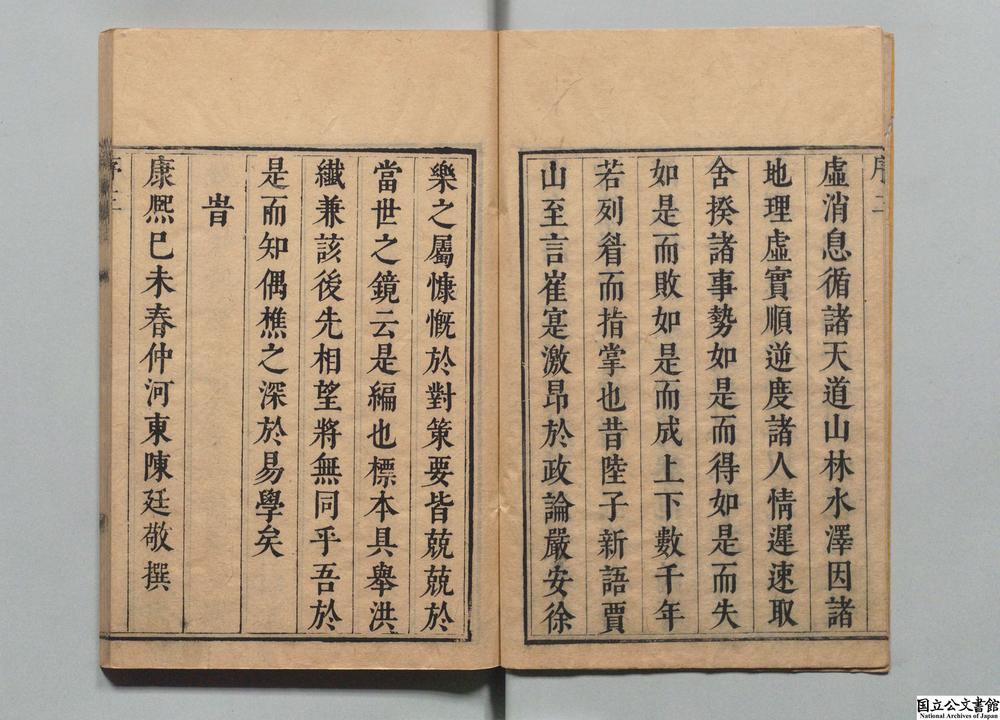 序 二
虛消息循諸天道山林水澤因諸
地理虛實順逆度諸人情遲速取
舍揆諸事勢如是而得如是而失
如是而敗如是而成上下數千年
若列眉而指掌也昔陸子新語賈
山至言崔寔激昂於政論嚴安徐
樂之屬慷慨於對策要皆兢兢於
當世之鏡云是編也標本具舉洪
纖兼該後先相望將無同乎吾於
是而知偶樵之深於易學矣
旹
康熙巳未春仲河東陳廷敬撰
国立公文書館
National Archives of Japan